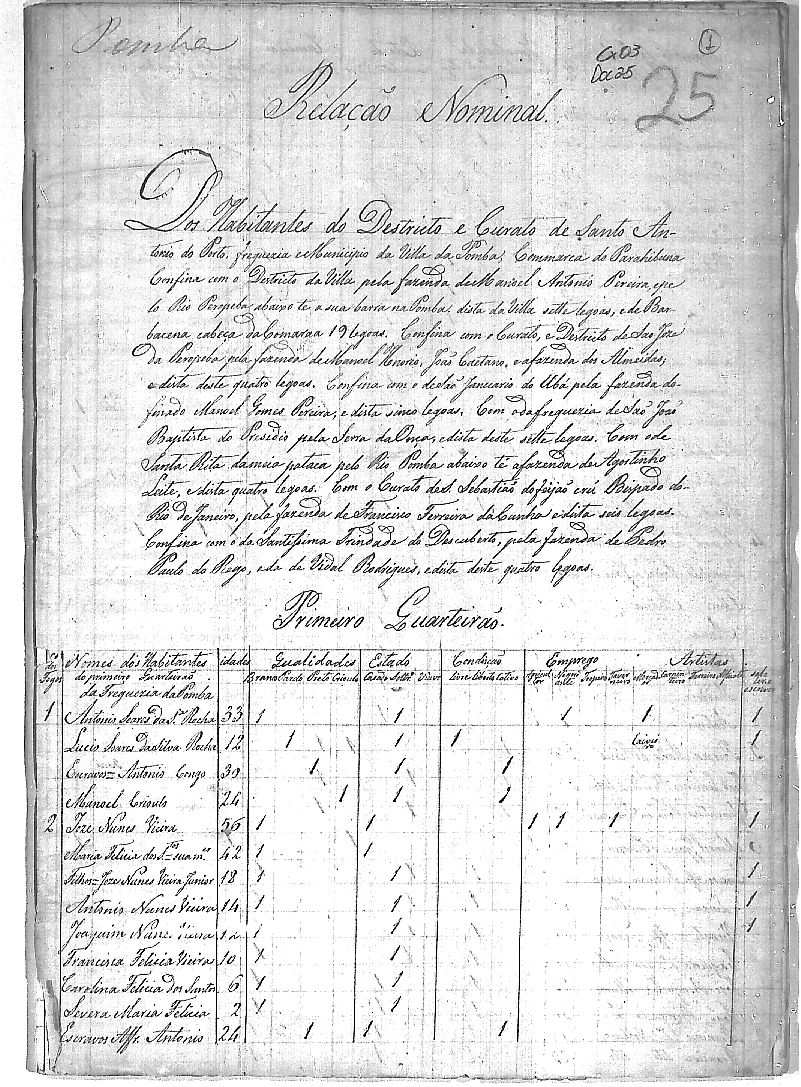 Pomba
Cx03
Doc25
1
25
Relação Nominal.
Dos Habitantes do Destricto e Curato de Santo An-
tonio do Porto, freguezia e Municipio da Villa da Pomba, Commarca do Parahibuna
Confina com o Destricto da Villa pela fazenda de Manoel Antonio Pereira, e pe
lo Rio Peropeba abaixo te a sua barra na Pomba: dista da Villa sette legoas, e de Bar-
bacena cabeça da Comarca 19 legoas. Confina com o Curato, e Destricto de Saõ Joze
da Peropeba pela fazenda de Manoel Honorio, Joaõ Caetano, e a fazenda dos Almeidas,
e dista deste quatro legoas. Confina com o de Saõ Januario do Ubá pela fazenda do
finado Manoel Gomes Pereira, e dista sinco legoas. Com o da freguezia de Saõ Joaõ
Baptista do Presidio pela Serra da Onça, e dista deste sette legoas. Com o de
Santa Rita da meia pataca pelo Rio Pomba abaixo té a fazenda de Agostinho
Leite, e dista quatro legoas. Com o Curato de S. Sebastiaõ do feijaõ crú Bispado do
Rio de Janeiro, pela fazenda de Francisco Ferreira da Cunha e dista seis legoas.
Confina com o da Santissima Trindade do Descuberto, pela fazenda de Pedro
Paulo do Rego, e da de Vidal Rodrigues, e dista deste quatro legoas.
Primeiro Quarteiraõ.
Nos. dos Fogos Nomes dos Habitantes do primeiro Quarteiraõ da Freguezia da Pomba idades Qualidades Estado Condição Emprego Artistas
Branco Pardo Preto Crioulo Cazado Solto. Viuvo Livre Liberto Cativo Agricultor Negociante Tropeiro Taverneiro Carpinteiro Ferreiro sabe ler e escrever
1 Antonio Soares da Sa. Rocha 33 1 1 1 1 1
Lucio Soares da Silva Rocha 12 1 1 1 Caixeiro 1
Escravos= Antonio Congo 30 1 1 1
Manoel Crioulo 24 1 1 1
2 Joze Nunes Vieira 56 1 1 1 1 1 1
Maria Felicia dos Stos. sua mer. 42 1 1
Filhos= Joze Nunes Vieira Junior 18 1 1 1
Antonio Nunes Vieira 14 1 1 1
Joaquim Nunes Vieira 12 1 1 1
Francisca Felicia Vieira 10 1 1
Carolina Felicia dos Santos 6 1 1
Severa Maria Felicia 2 1 1
Escravos Affr. Antonio 24 1 1 1